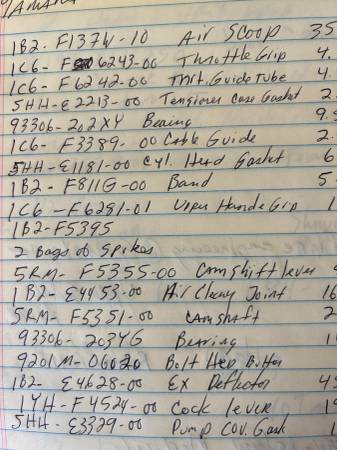 YAMAHA
1B2-F137W-10 Air Scoop 35
1C6-F6243-00 Throttle Grip 4.
1C6-F6242-00 Thrt. Guide Tube 4
5HH-E2213-00 Tensioner Case Gasket 2
93306-202XY Bearing 9.
1C6-F3389-00 Cable Guide 2.
5HH-E1181-00 Cyl. Head Gasket 6
1B2-F811G-00 Band 5
1C6-F6281-01 Grip
1B2-F5395
2 Bags of Spikes
5RM-F5355-00 Camshift lever 4
1B2-E4453-00 Air Cleanr Joint 16
5RM-F5351-00 Camshaft 2
93306-203YG Bearing 1
9201M-06020 Bolt Hep
1B2-E4628-00 EX Deflector 4
1YH-F4524-00 Cock lever 1
5HH-E3329-00 Pump Cov. Gask 1